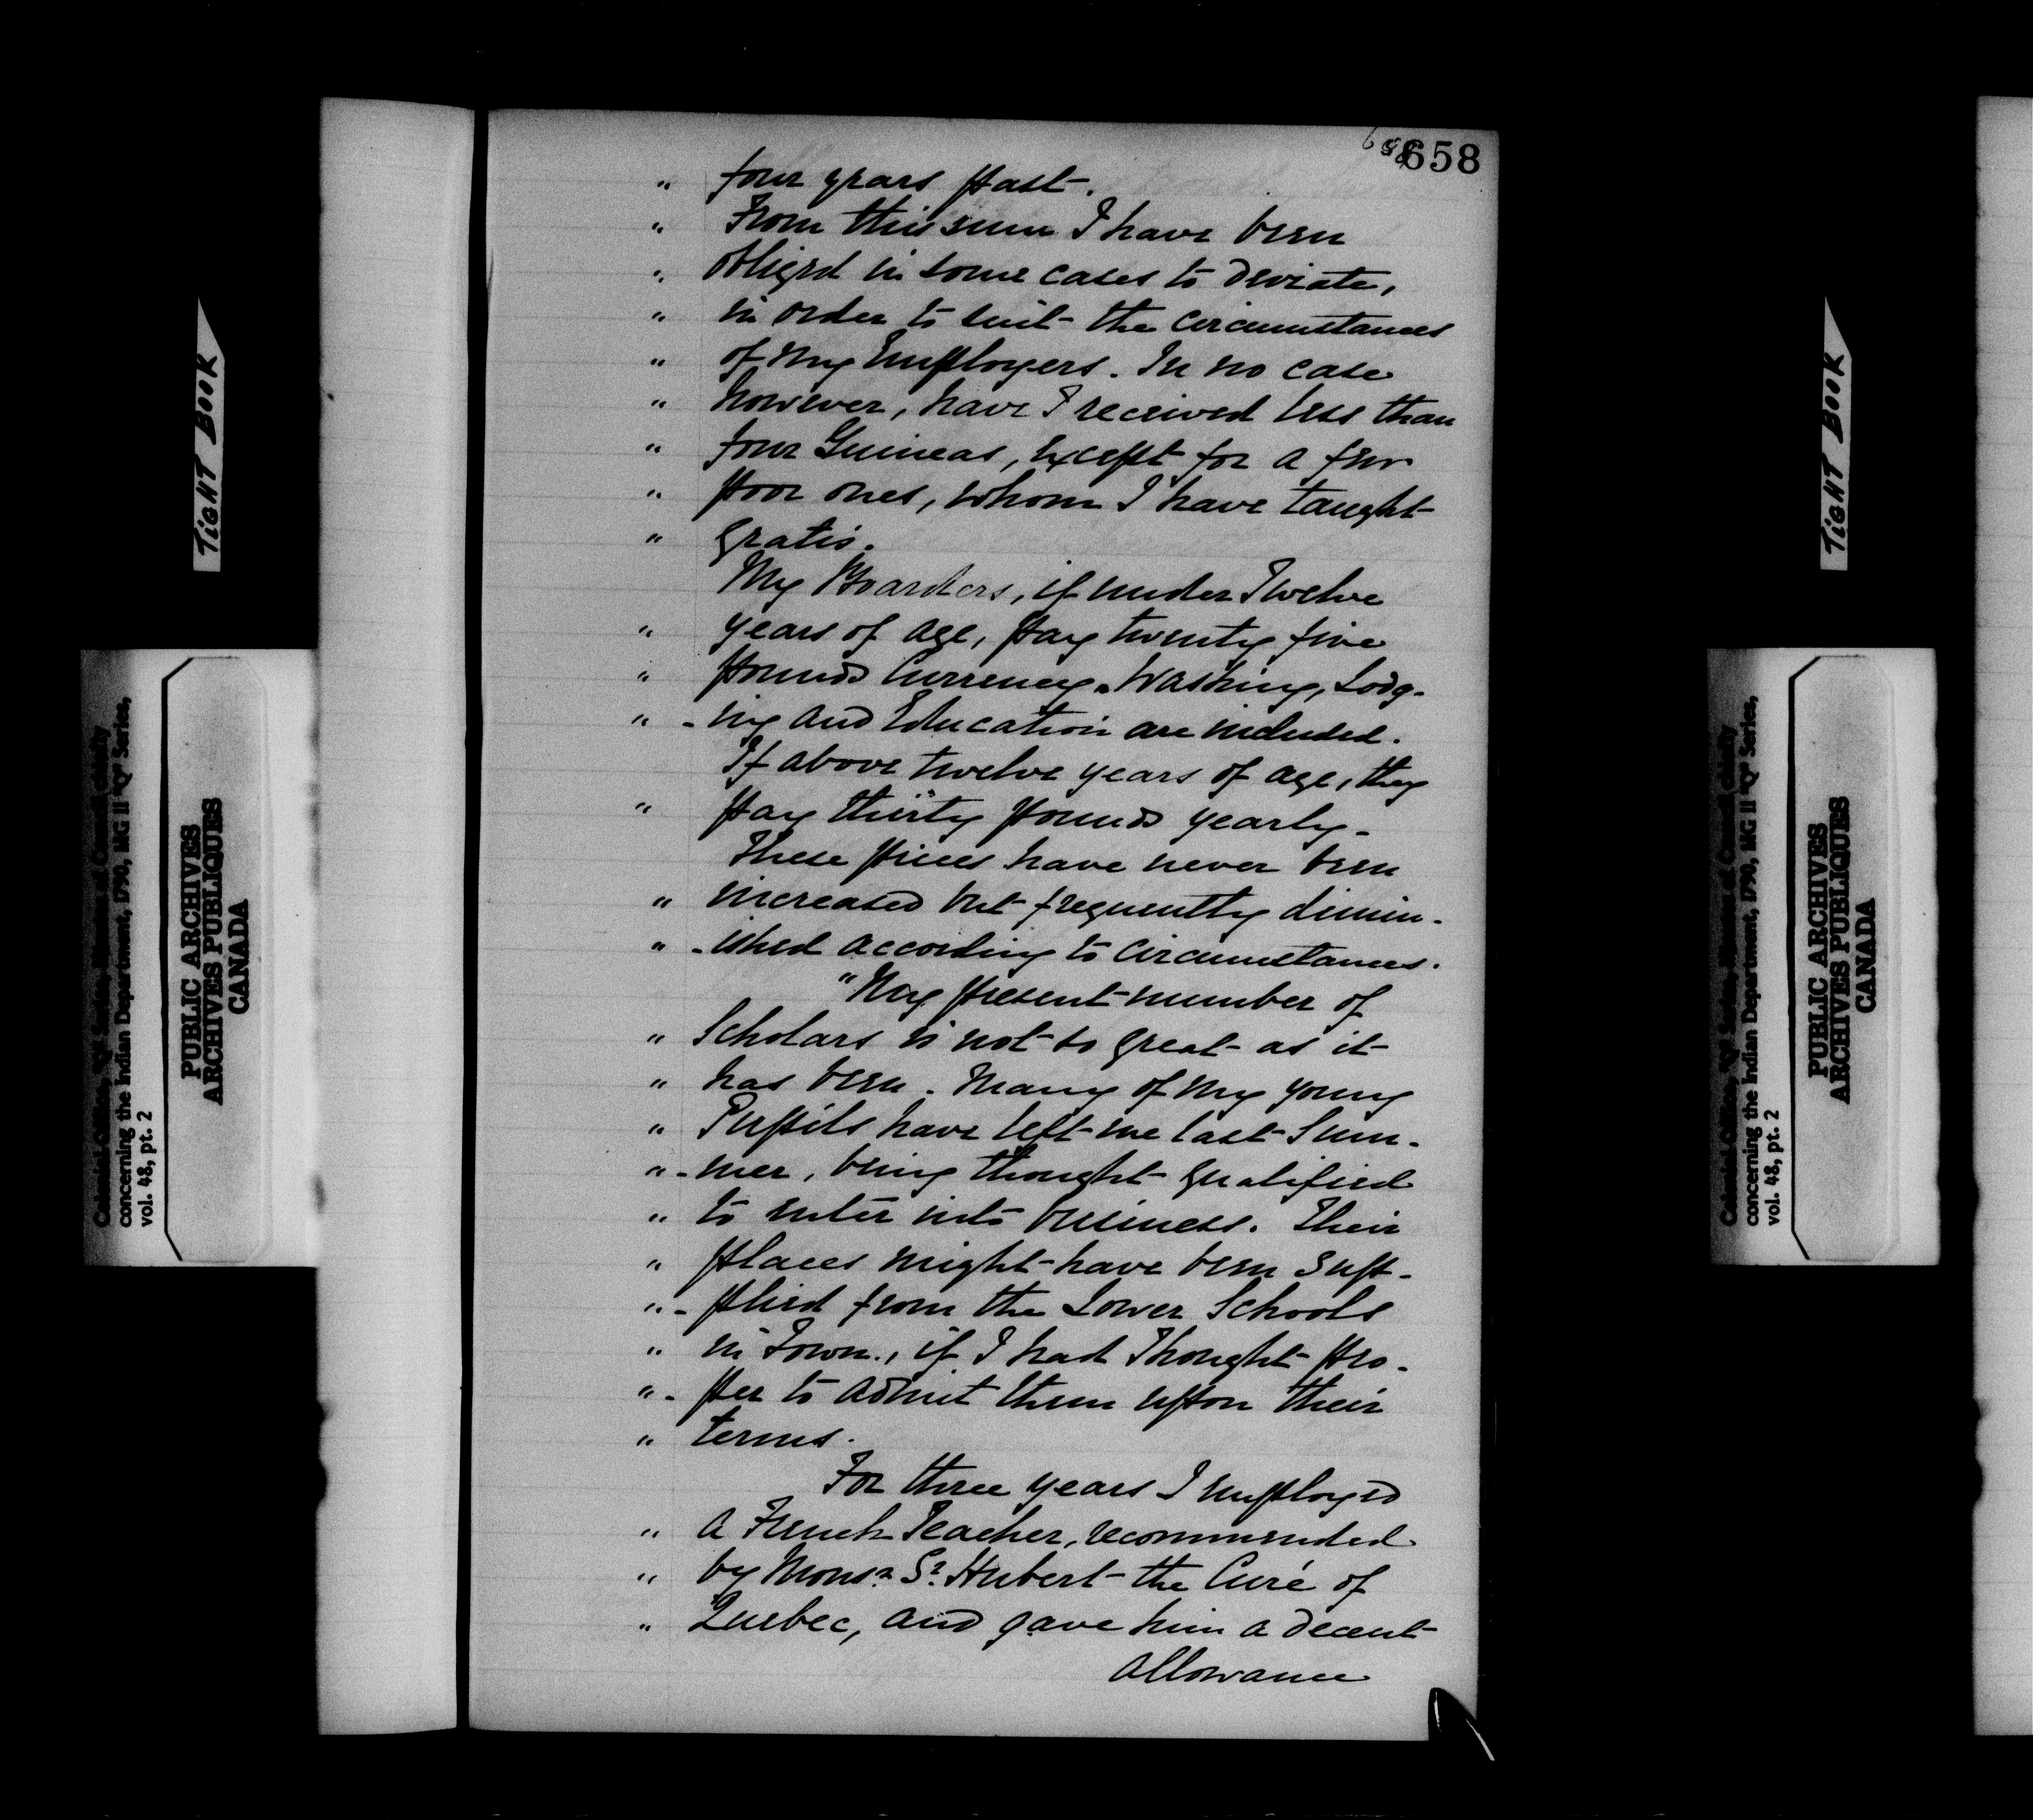 658
" four years past.
" From this sum I have been
" obliged in some cases to deviate,
" in order to suit the circumstances
" of my Employers. In no case
" however, have I received less than
" four Guineas, except for a few
" poor ones, whom I have taught
" gratis.
My Boarders, if under Twelve
" years of age, pay twenty five
" pounds Currency. Washing, Lodg-
" -ing and Education are included.
If above twelve years of age, they
" pay thirty pounds yearly.
These prices have never been
" increased but frequently dimin-
" -ished according to circumstances.
"My present number of
" Scholars is not so great as it
" has been. Many of my young
" Pupils have left me last Sum-
" -mer, being thought qualified
" to enter into business. Their
" places might have been sup-
" -plied from the Lower Schools
" in Town, if I had thought pro-
" -per to admit them upon their
" terms.
For three years I employed
" a French Teacher, recommended
" by Monsr. Sr. Hubert the Curé of
" Quebec, and gave him a decent
allowance
TIGHT BOOK
concerning the Indian Department, 1790, MG 11 "Q" Series,
vol. 48, pt. 2
PUBLIC ARCHIVES
ARCHIVES PUBLIQUES
CANADA
TIGHT BOOK
concerning the Indian Department, 1790, MG 11 "Q" Series,
vol. 48, pt. 2
PUBLIC ARCHIVES
ARCHIVES PUBLIQUES
CANADA